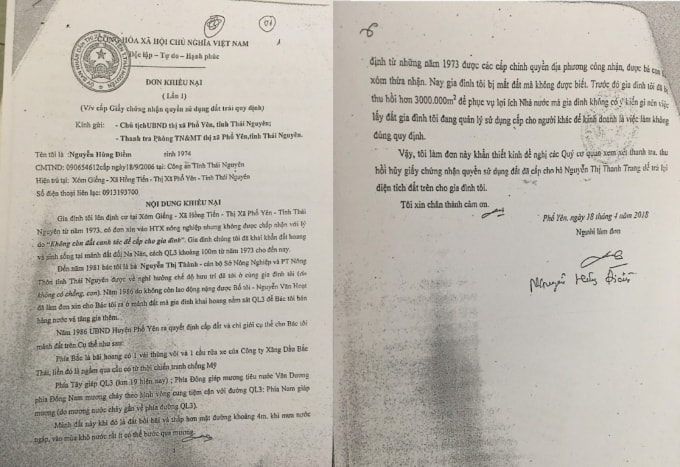 CỘNG HÒA XÃ HỘI CHỦ NGHĨA VIỆT NAM
Độc lập - Tự do - Hạnh phúc
ĐƠN KHIẾU NẠI
(Lần 1)
(V/v cấp Giấy chứng nhận quyền sử dụng đất trái quy định)
Kính gửi: - Chủ tịch UBND thị xã Phổ Yên, tỉnh Thái Nguyên.
- Thanh tra Phòng TN&MT thị xã Phổ Yên, tỉnh Thái Nguyên.
Tên tôi là: Nguyễn Hùng Điềm sinh 1974
CMTND: 090654612 cấp ngày 18/9/2006 tại: Công an Tỉnh Thái Nguyên
Hiện trú tại: Xóm Giếng - Xã Hồng Tiến - Thị Xã Phổ Yên - Tỉnh Thái Nguyên
Số điện thoại liên lạc: 0913193700
NỘI DUNG KHIẾU NẠI
Gia đình tôi lên định cư tại Xóm Giếng - Xã Hồng Tiến - Thị Xã Phổ Yên - Tỉnh Thái
Nguyên từ năm 1973, có đơn xin vào HTX nông nghiệp nhưng không được chấp nhận với lý
do "Không còn đất canh tác để cấp cho gia đình". Gia đình chúng tôi đã khai khẩn đất hoang
và sinh sống tại mảnh đất đồi Na Nàn, cách QL3 khoảng 100m từ năm 1973 cho đến nay.
Đến năm 1981 bác tôi là bà Nguyễn Thị Thành - cán bộ Sở Nông Nghiệp và PT Nông
Thôn tỉnh Thái Nguyên được về nghỉ hưởng chế độ hưu trí đã tới ở cùng gia đình tôi (do
không có chồng, con). Năm 1986 do không còn lao động nặng được Bố tôi - Nguyễn Văn
đã làm đơn xin cho Bác tôi ra ở mảnh đất mà gia đình khai hoang nằm sát QL3 để Bác tôi bán
hàng nước và tăng gia thêm.
Năm 1986 UBND Huyện Phổ Yên ra quyết định cấp đất và chỉ giới cụ thể cho Bác tôi
mảnh đất trên Cụ thể như sau:
Phía Bắc là bãi hoang có 1 vài thùng vôi và 1 cầu rửa xe của Công ty Xăng Dầu Bắc
Thái, liền đó là ngầm qua cầu có từ thời chiến tranh chống Mỹ
Phía Tây giáp QL3 (km 19 hiện nay) ; Phía Đông giáp mương tiêu nước Vân Dương
phía Đông Nam mương chảy theo hình vòng cung tiệm cận với đường QL3: Phía Nam giáp
mương (do mương nước chảy gần về phía đường QL3).
Mảnh đất này khi đó là đất bồi bãi và thấp hơn mặt đường khoảng 4m, khi mưa nước
ngập, vào mùa khô nước rất ít có thể bước qua mương.
định từ những năm 1973 được các cấp chính quyền địa phương công nhận, được bà con
xóm thừa nhận. Nay gia đình tôi bị mất đất mà không được biết. Trước đó gia đình tôi đã bị
thu hồi hơn 3000.000m² để phục vụ lợi ích Nhà nước mà gia đình không có ý kiến gì nên việc
lấy đất gia đình tôi đang quản lý sử dụng cấp cho người khác để kinh doanh là việc làm không
đúng quy định.
Vậy, tôi làm đơn này khẩn thiết kính đề nghị các Quý cơ quan xem xét thanh tra, thu
hồi hủy giấy chứng nhận quyền sử dụng đất đã cấp cho hộ Nguyễn Thị Thanh Trang để trả lại
diện tích đất trên cho gia đình tôi.
Tôi xin chân thành cảm ơn.
Phổ Yên, ngày 18 tháng 4 năm 2018
Người làm đơn
Nguyễn Hùng Điềm